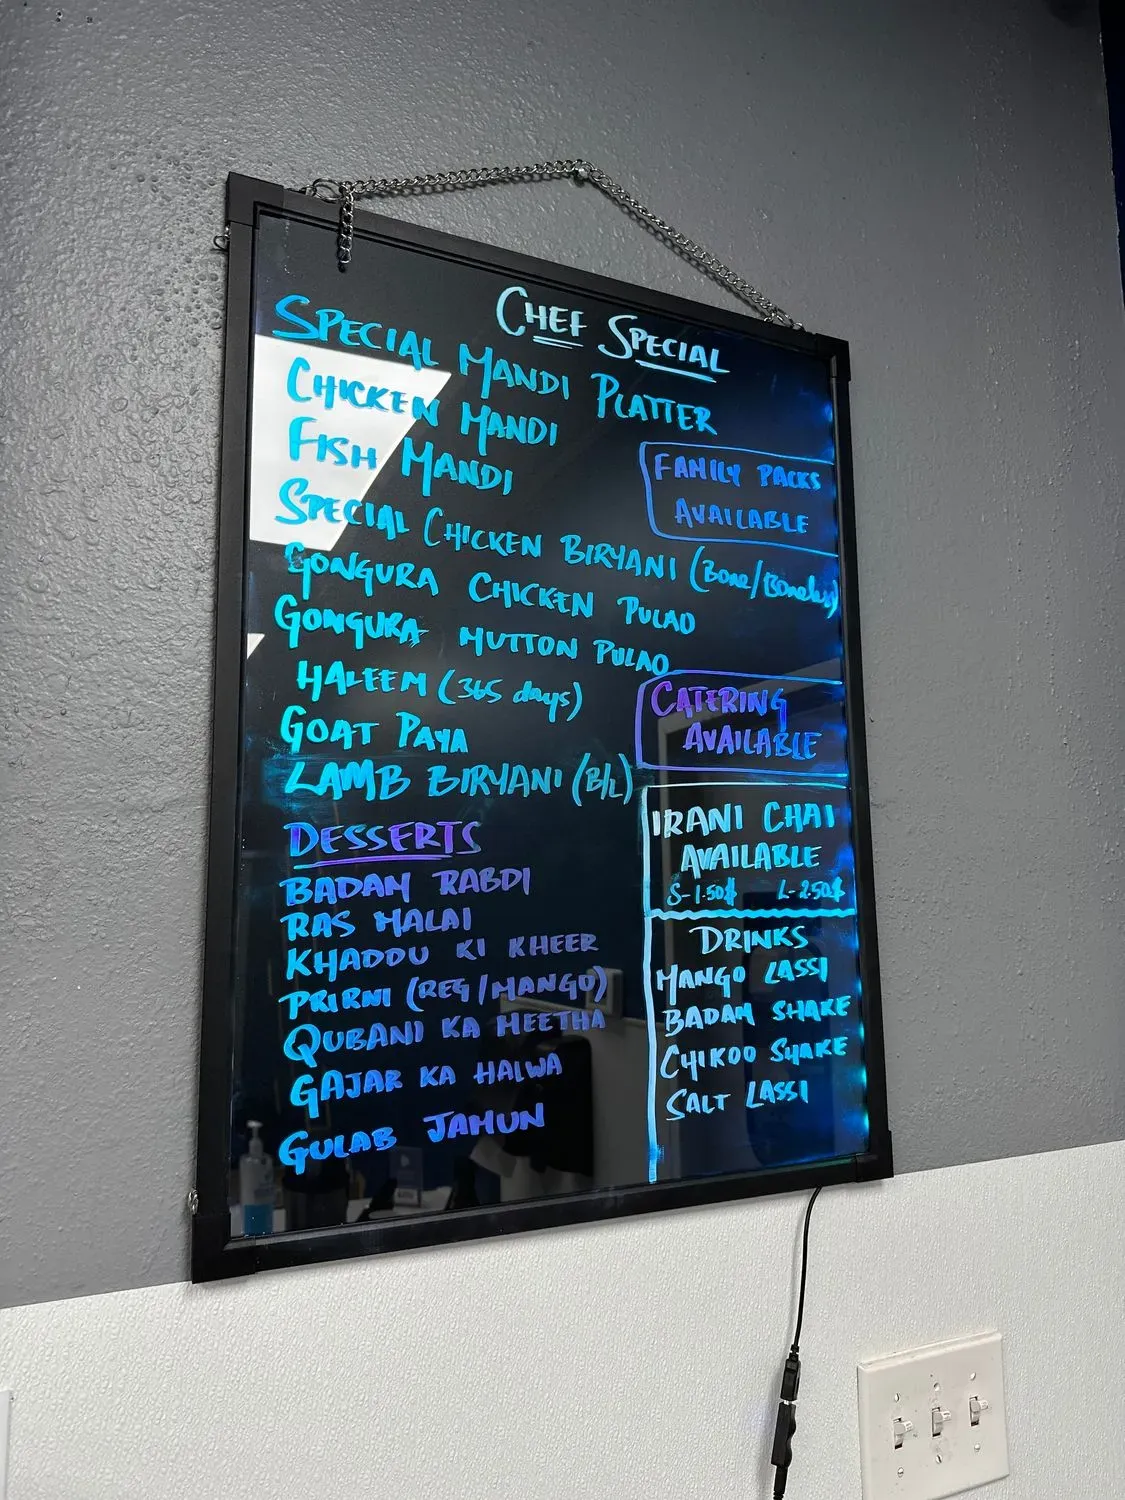 CHEF SPECIAL
SPECIAL MANDI PLATTER
CHICKEN MANDI
FISH MANDI
FAMILY PACKS
AVAILABLE
SPECIAL CHICKEN BIRYANI (Bone/Boneless)
GONGURA CHICKEN PULAO
GONGURA MUTTON PULAO
HALEEM (365 days)
GOAT PAYA
LAMB BIRYANI (B/L)
CATERING
AVAILABLE
DESSERTS
BADAM RABDI
RAS MALAI
KHADDU KI KHEER
PRIRNI (REG/MANGO)
QUBANI KA MEETHA
GAJAR KA HALWA
GULAB JAMUN
IRANI CHAI
AVAILABLE
S-1.50$ L-2.50$
DRINKS
MANGO LASSI
BADAM SHAKE
CHIKOO SHAKE
SALT LASSI